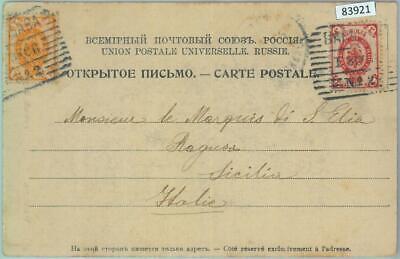 83921
ВСЕМІРНЫЙ ПОЧТОВЫЙ СОЮЗЪ. РОССІЯ.
UNION POSTALE UNIVERSELLE. RUSSIE.
ОТКРЫТОЕ ПИСЬМО. — CARTE POSTALE.
№ 2
№ 2
Monsieur le Marquis di S. Elia
Ragusa
Sicilia
Italie
На этой сторонѣ пишется только адресъ. — Côté réservé exclusivement à l'adresse.